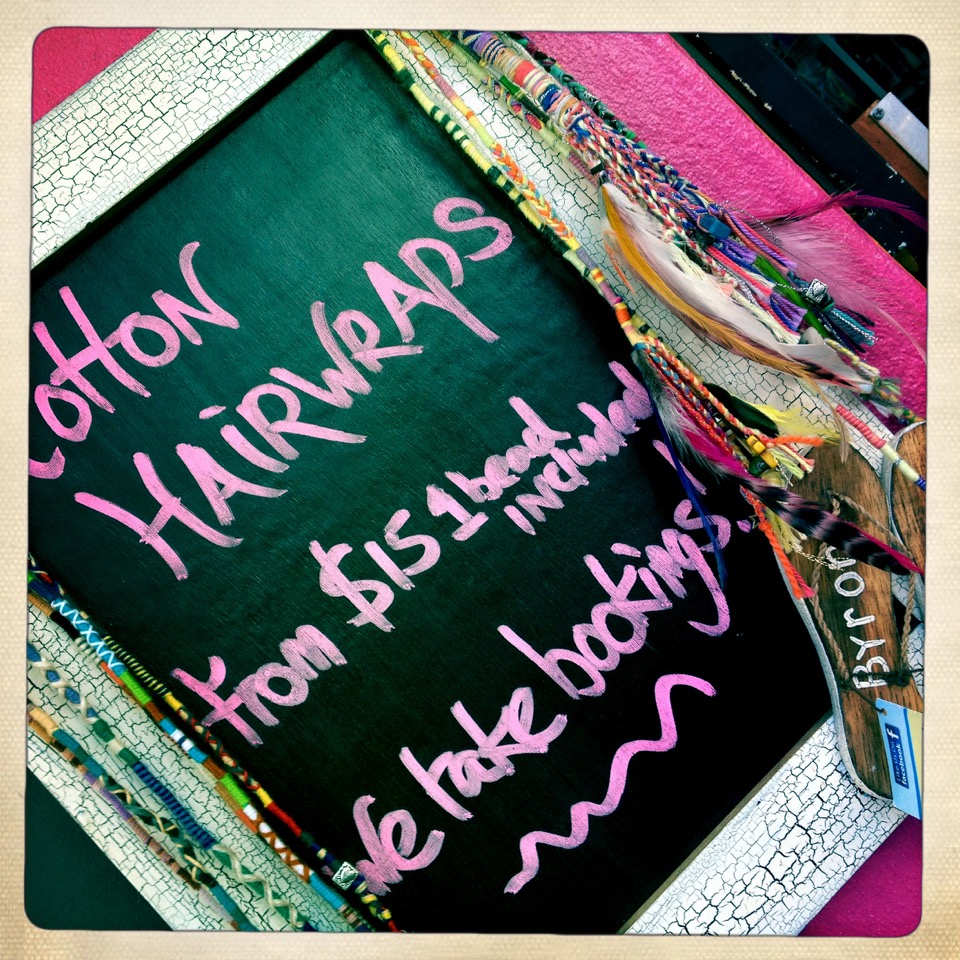 Cotton
HAiRWRAPS
From $15 1 bead
included
We take bookings!
Byron
Like Us On
facebook